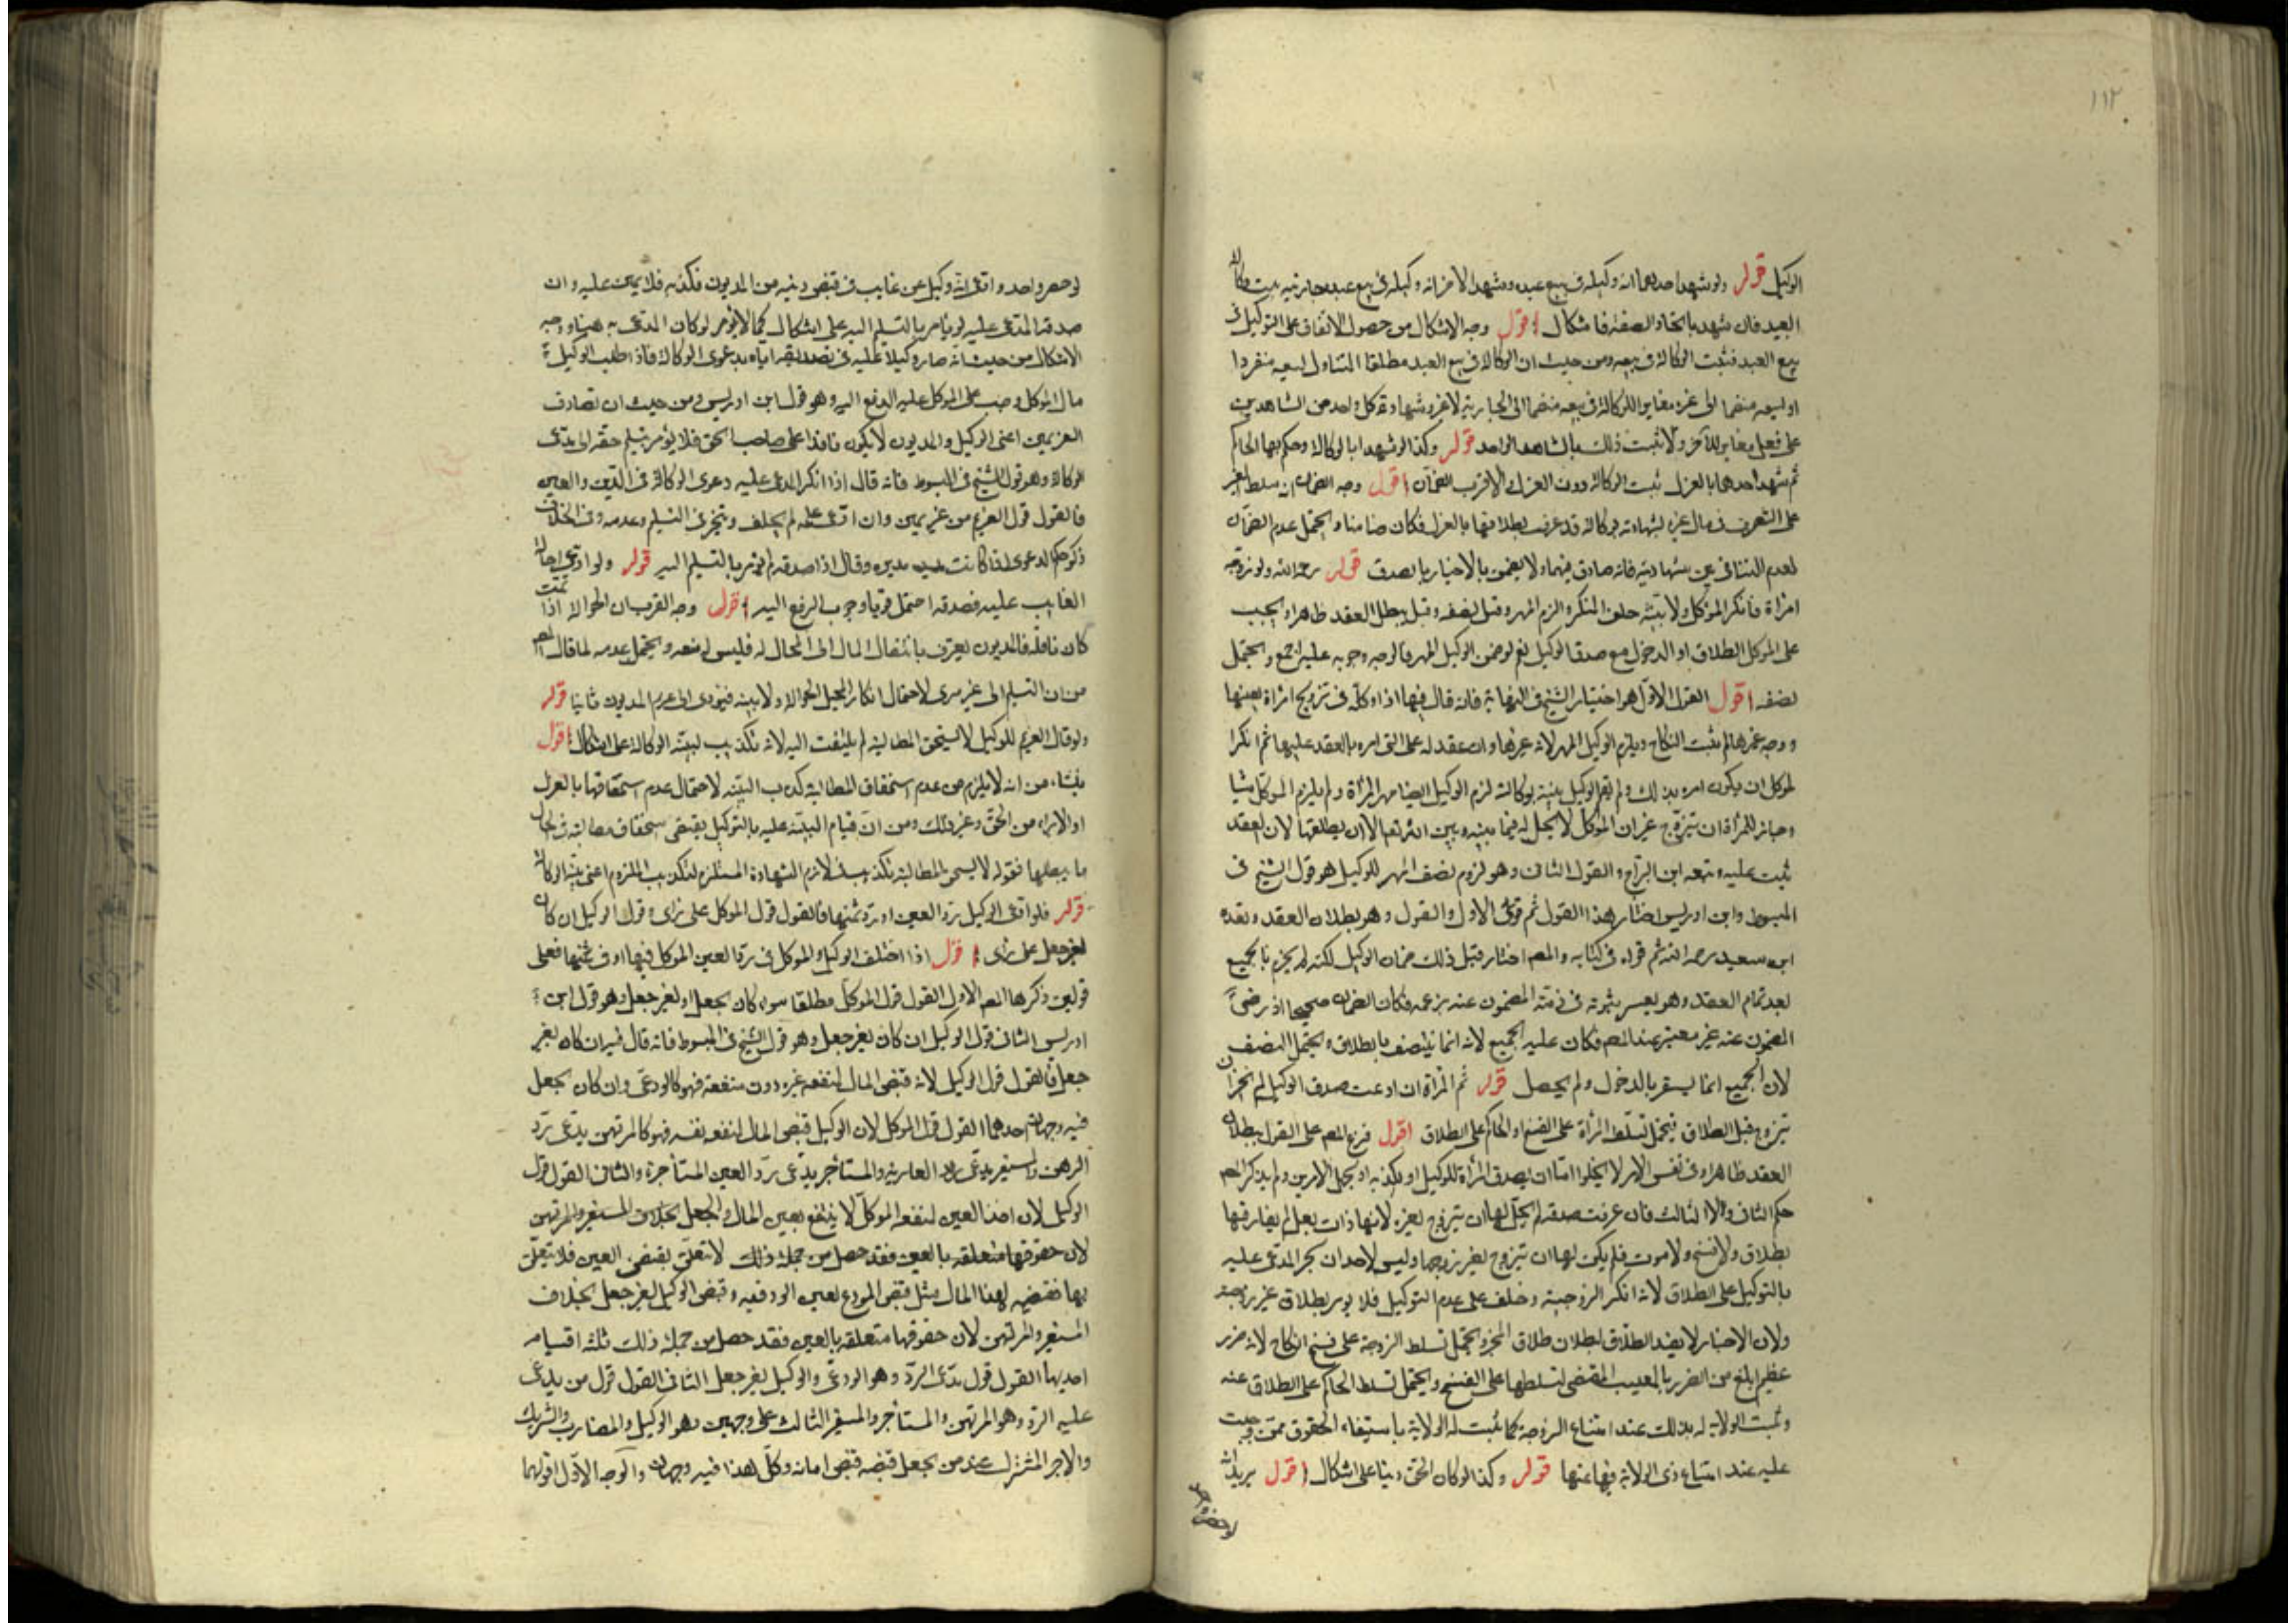 ١١٢
الوكيل قوله ولو شهد احدهما انه وكيله فى بيع عبده وشهد الاخر انه وكيله فى بيع عبده وجاريته ثبت وكالة
العبد فان شهد باتحاد الصفقة فاشكال اقول وجه الاشكال من حصول الاتفاق على التوكيل فى
بيع العبد فثبت الوكالة فى بيعه ومن حيث ان الوكالة فى بيع العبد مطلقا المتناول لبيعه منفردا
او لبيعه منضما الى غيره مغاير للوكالة فى بيعه منضما الى الجارية لا غير وشهادة كل واحد من الشاهدين
على فعل مغاير للآخر ولا يثبت ذلك بالشاهد الواحد قوله وكذا لو شهدا بالوكالة وحكم بهما الحاكم
ثم شهد احدهما بالعزل ثبت الوكالة دون العزل والاقرب الضمان اقول وجه الضمان انه سلط الغير
على التصرف فى مال غيره بشهادته بوكالة قد عرف بطلانها بالعزل فكان ضامنا ويحتمل عدم الضمان
لعدم التنافى بين شهادتيه فانه صادق فيهما ولا يضمن بالاخبار بالصدق قوله رحمه الله ولو زوجه
امراة فانكر الموكل ولا بينة حلف المنكر والزم المهر وقيل نصفه وقيل يبطل العقد ظاهرا ويجب
على الموكل الطلاق او الدخول مع صدق الوكيل نعم لو ضمن الوكيل المهر فالوجه وجوبه عليه اجمع ويحتمل
نصفه اقول القول الاول هو اختيار الشيخ فى النهاية فانه قال فيها اذا وكله فى تزويج امراة بعينها
فزوجه غيرها لم يثبت النكاح ويلزم الوكيل المهر لانه غرها وان عقد له على التى امره بالعقد عليها ثم انكر
الموكل ان يكون امره بذلك ولم يقم الوكيل بينة بوكالته لزم الوكيل ايضا مهر المرأة ولم يلزم الموكل شيئا
وجاز للمرأة ان تتزوج غير ان الموكل لا يحل له فيما بينه وبين الله تعالى الا ان يطلقها لان العقد
ثبت عليه وتبعه ابن البراج والقول الثانى وهو لزوم نصف المهر للوكيل هو قول الشيخ فى
المبسوط وابن ادريس اختار هذا القول ثم قوى الاول والقول وهو بطلان العقد ونقله
ابن سعيد رحمه الله ثم قواه فى كتابه والمصه اختار قبل ذلك ضمان الوكيل لكنه لم يجزم بالجميع
بعد تمام العقد وهو يعسر ثبوته فى ذمة المضمون عنه بزعمه فكان الضمان صحيحا اذ رضى
المضمون عنه غير معتبر عند المصه فكان عليه الجميع لانه انما ينتصف بالطلاق ويحتمل النصف
لان الجميع انما يستقر بالدخول ولم يحصل قوله ثم المرأة ان ادعت صدق الوكيل لم يجز ان
تتزوج قبل الطلاق فيحتمل تسلط المرأة على الفسخ او الحاكم على الطلاق اقول فرع المصه على القول ببطلان
العقد ظاهرا وفى نفس الامر لا يخلوا اما ان يصدق المرأة للوكيل او يكذبه او يجهل الامرين ولم يذكر المصه
حكم الثانى ولا الثالث فان عرفت صدقه لم يحل لها ان تتزوج بغيره لانها ذات بعل لم يفارقها
بطلاق ولا فسخ ولا موت فلم يكن لها ان تتزوج بغير زوجها وليس لاحد ان يجبر المدعى عليه
بالتوكيل على الطلاق لانه انكر الزوجية وحلف على عدم التوكيل فلا يؤمر بطلاق غير زوجته
ولان الاجبار لا يفيد الطلاق لبطلان طلاق المجبر ويحتمل تسلط الزوجة على فسخ النكاح لانه ضرر
عظيم ابلغ من الضرر بالعيب المقتضى لتسلطها على الفسخ ويحتمل تسلط الحاكم على الطلاق عنه
وتثبت الولاية له بذلك عند امتناع الزوجة كما ثبت له الولاية باستيفاء الحقوق ممن وجبت
عليه عند امتناع ذى الولاية فيها عنها قوله وكذا لو كان الحق دينا على اشكال اقول يريد انه
لو حضر واحد
لو حضر واحد وادعى انه وكيل عن غايب فى قبض دينه من المديون فكذبه فلا يمين عليه وان
صدقه المدعى عليه لو يؤمر بالتسليم اليه على اشكال كما لا يؤمر لو كان المدعى به عينا ووجه
الاشكال من حيث انه صار وكيلا عليه فى تصديقه اياه بدعوى الوكالة فاذا طلب الوكيل
مال الموكل وجب على الموكل عليه الدفع اليه وهو قول ابن ادريس ومن حيث ان تصادف
الغريمين اعنى الوكيل والمديون لا يكون نافذا على صاحب الحق فلا يؤمر بتسليم حقه الى مدعى
الوكالة وهو قول الشيخ فى المبسوط فانه قال اذا انكر المدعى عليه دعوى الوكالة فى الدين والعين
فالقول قول الغريم من غير يمين وان ادعى علمه لم يحلف ويتخير فى التسليم وعدمه وفى الخلاف
ذكر حكم الدعوى اذا كانت بدين وقال اذا صدقه لم يؤمر بالتسليم اليه قوله ولو ادعى احالة
الغايب عليه فصدقه احتمل قويا وجوب الدفع اليه اقول وجه القرب ان الحوالة اذا تمت
كان ناقلة فالمديون يعترف بانتقال المال الى المحال له فليس له منعه ويحتمل عدمه لما قال المصه
من ان التسليم الى غير مبرئ لاحتمال انكار المحيل الحوالة ولا بينة فيؤدى الى غرم المديون ثانيا قوله
ولو قال الغريم للوكيل لا يستحق المطالبة لم يلتفت اليه لانه تكذيب لبينة الوكالة على اشكال اقول
ينشاء من انه لا يلزم من عدم استحقاق المطالبة كذب البينة لاحتمال عدم استحقاقها بالعزل
او الابراء من الحق وغير ذلك ومن ان قيام البينة عليه بالتوكيل يقتضى استحقاق مطالبته فى الحال
ما يبطلها فقوله لا يستحق المطالبة تكذيب فى لازم الشهادة المستلزم لتكذيب الملزوم اعنى بينة الوكالة
قوله فلو ادعى الوكيل رد العين او رد ثمنها فالقول قول الموكل على رأى وقول الوكيل ان كان
بغير جعل على رأى اقول اذا اختلف الوكيل والموكل فى رد العين الموكل فيها او فى ثمنها فعلى
قولين ذكرهما المصه الاول القول قول الموكل مطلقا سواء كان بجعل او بغير جعل وهو قول ابن
ادريس الثانى قول الوكيل ان كان بغير جعل وهو قول الشيخ فى المبسوط فانه قال فيه ان كان بغير
جعل فالقول قول الوكيل لانه قبض المال لمنفعة غيره دون منفعته فهو كالودعى وان كان بجعل
فيه وجهان احدهما القول قول الموكل لان الوكيل قبض المال لمنفعة نفسه فهو كالمرتهن يدعى رد
الرهن والمستعير يدعى رد العارية والمستأجر يدعى رد العين المستأجرة والثانى القول قول
الوكيل لان اخذ العين لمنفعة الموكل لا ينتفع بعين المال والجعل بخلاف المستعير والمرتهن
لان حقوقها متعلقة بالعين فقد حصل من جملة ذلك لا تتعلق بقبض العين فلا يتعلق
بها فقبضه لهذا المال مثل قبض المودع لعين الوديعة وقبض الوكيل بغير جعل بخلاف
المستعير والمرتهن لان حقوقها متعلقة بالعين فقد حصل من جملة ذلك ثلثة اقسام
احديها القول قول مدعى الرد وهو الودعى والوكيل بغير جعل الثانى القول قول من يدعى
عليه الرد وهو المرتهن والمستأجر والمستعير الثالث على وجهين وهو الوكيل والمضارب والشريك
والاجير المشترك عند من يجعل قبضه قبض امانة وكل هذا فيه وجهان والوجه الاول اقواهما